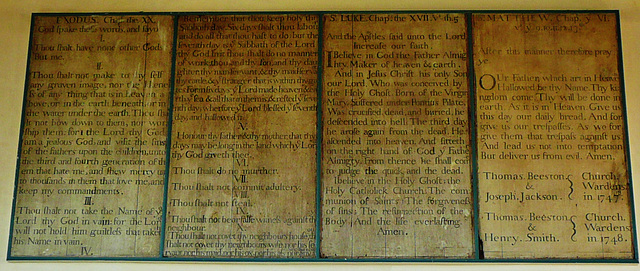 EXODUS. Chap. the XX.
God spake these words, and said
I.
Thou shalt have none other Gods
But me.
II.
Thou shalt not make to thy self
any graven image, nor the likeness
of any thing that is in Heaven a-
bove, or in the earth beneath, or in
the water under the earth. Thou shalt
not bow down to them, nor wor-
ship them: for I the Lord thy God
am a jealous God, and visit the sins
of the fathers upon the children, unto
the third and fourth generation of th
em that hate me, and shew mercy un
to thousands in them that love me, and
keep my commandments.
III.
Thou shalt not take the Name of y
Lord thy God in vain: for the Lord
will not hold him guiltless that taketh
his Name in vain.
IV.
Remember that thou keep holy the
Sabbath day. Six days shalt thou labour
and do all that thou hast to do; but the
seventh day is y Sabbath of the Lord
thy God. In it thou shalt do no manner
of work, thou and thy son, and thy dau
ghter, thy man servant & thy maid servant
thy cattle & y stranger that is within thy
gates. For in six days y Lord made heaven & earth
the sea & all that in them is, & rested y seventh
day: wherefore y Lord blessed y seventh
day and hallowed it.
V.
Honour thy father & thy mother; that thy
days may be long in the land which y Lord
thy God giveth thee.
VI.
Thou shalt do no murther.
VII.
Thou shalt not commit adultery.
VIII.
Thou shalt not steal.
IX.
Thou shalt not bear false witness against thy
neighbour.
X.
Thou shalt not covet thy neighbours house, thou
shalt not covet thy neighbours wife, nor his ser
vant, nor his maid, nor his ox, nor his ass, nor any
S. LUKE. Chap. the XVII. V. the 5
And the Apostles said unto the Lord
Increase our faith.
I Believe in God the Father Almig
hty, Maker of heaven & earth.
And in Jesus Christ his only Son
our Lord, Who was conceived by
the Holy Ghost, Born of the Virgin
Mary, Suffered under Pontius Pilate,
Was crucified, dead, and buried, He
descended into hell; The third day
he arose again from the dead, He
ascended into heaven, And sitteth
on the right hand of God y Father
Almighty; From thence he shall come
to judge the quick, and the dead.
I Believe in the Holy Ghost; the
Holy Catholick Church; The com
munion of Saints; The forgiveness
of sins; The resurrection of the
Body; And the life everlasting
Amen.
MATTHEW. Chap. y VI.
After this manner therefore pray
ye
Our Father, which art in Heaven
Hallowed be thy Name. Thy ki
ngdom come. Thy will be done in
earth, As it is in Heaven. Give us
this day our daily bread. And for
give us our trespasses, As we for
give them that trespass against us.
And lead us not into temptation
But deliver us from evil. Amen.
Thomas. Beeston. Church.
& Wardens
Joseph. Jackson. in 1747
Thomas. Beeston. Church.
& Wardens
Henry. Smith. in 1748.